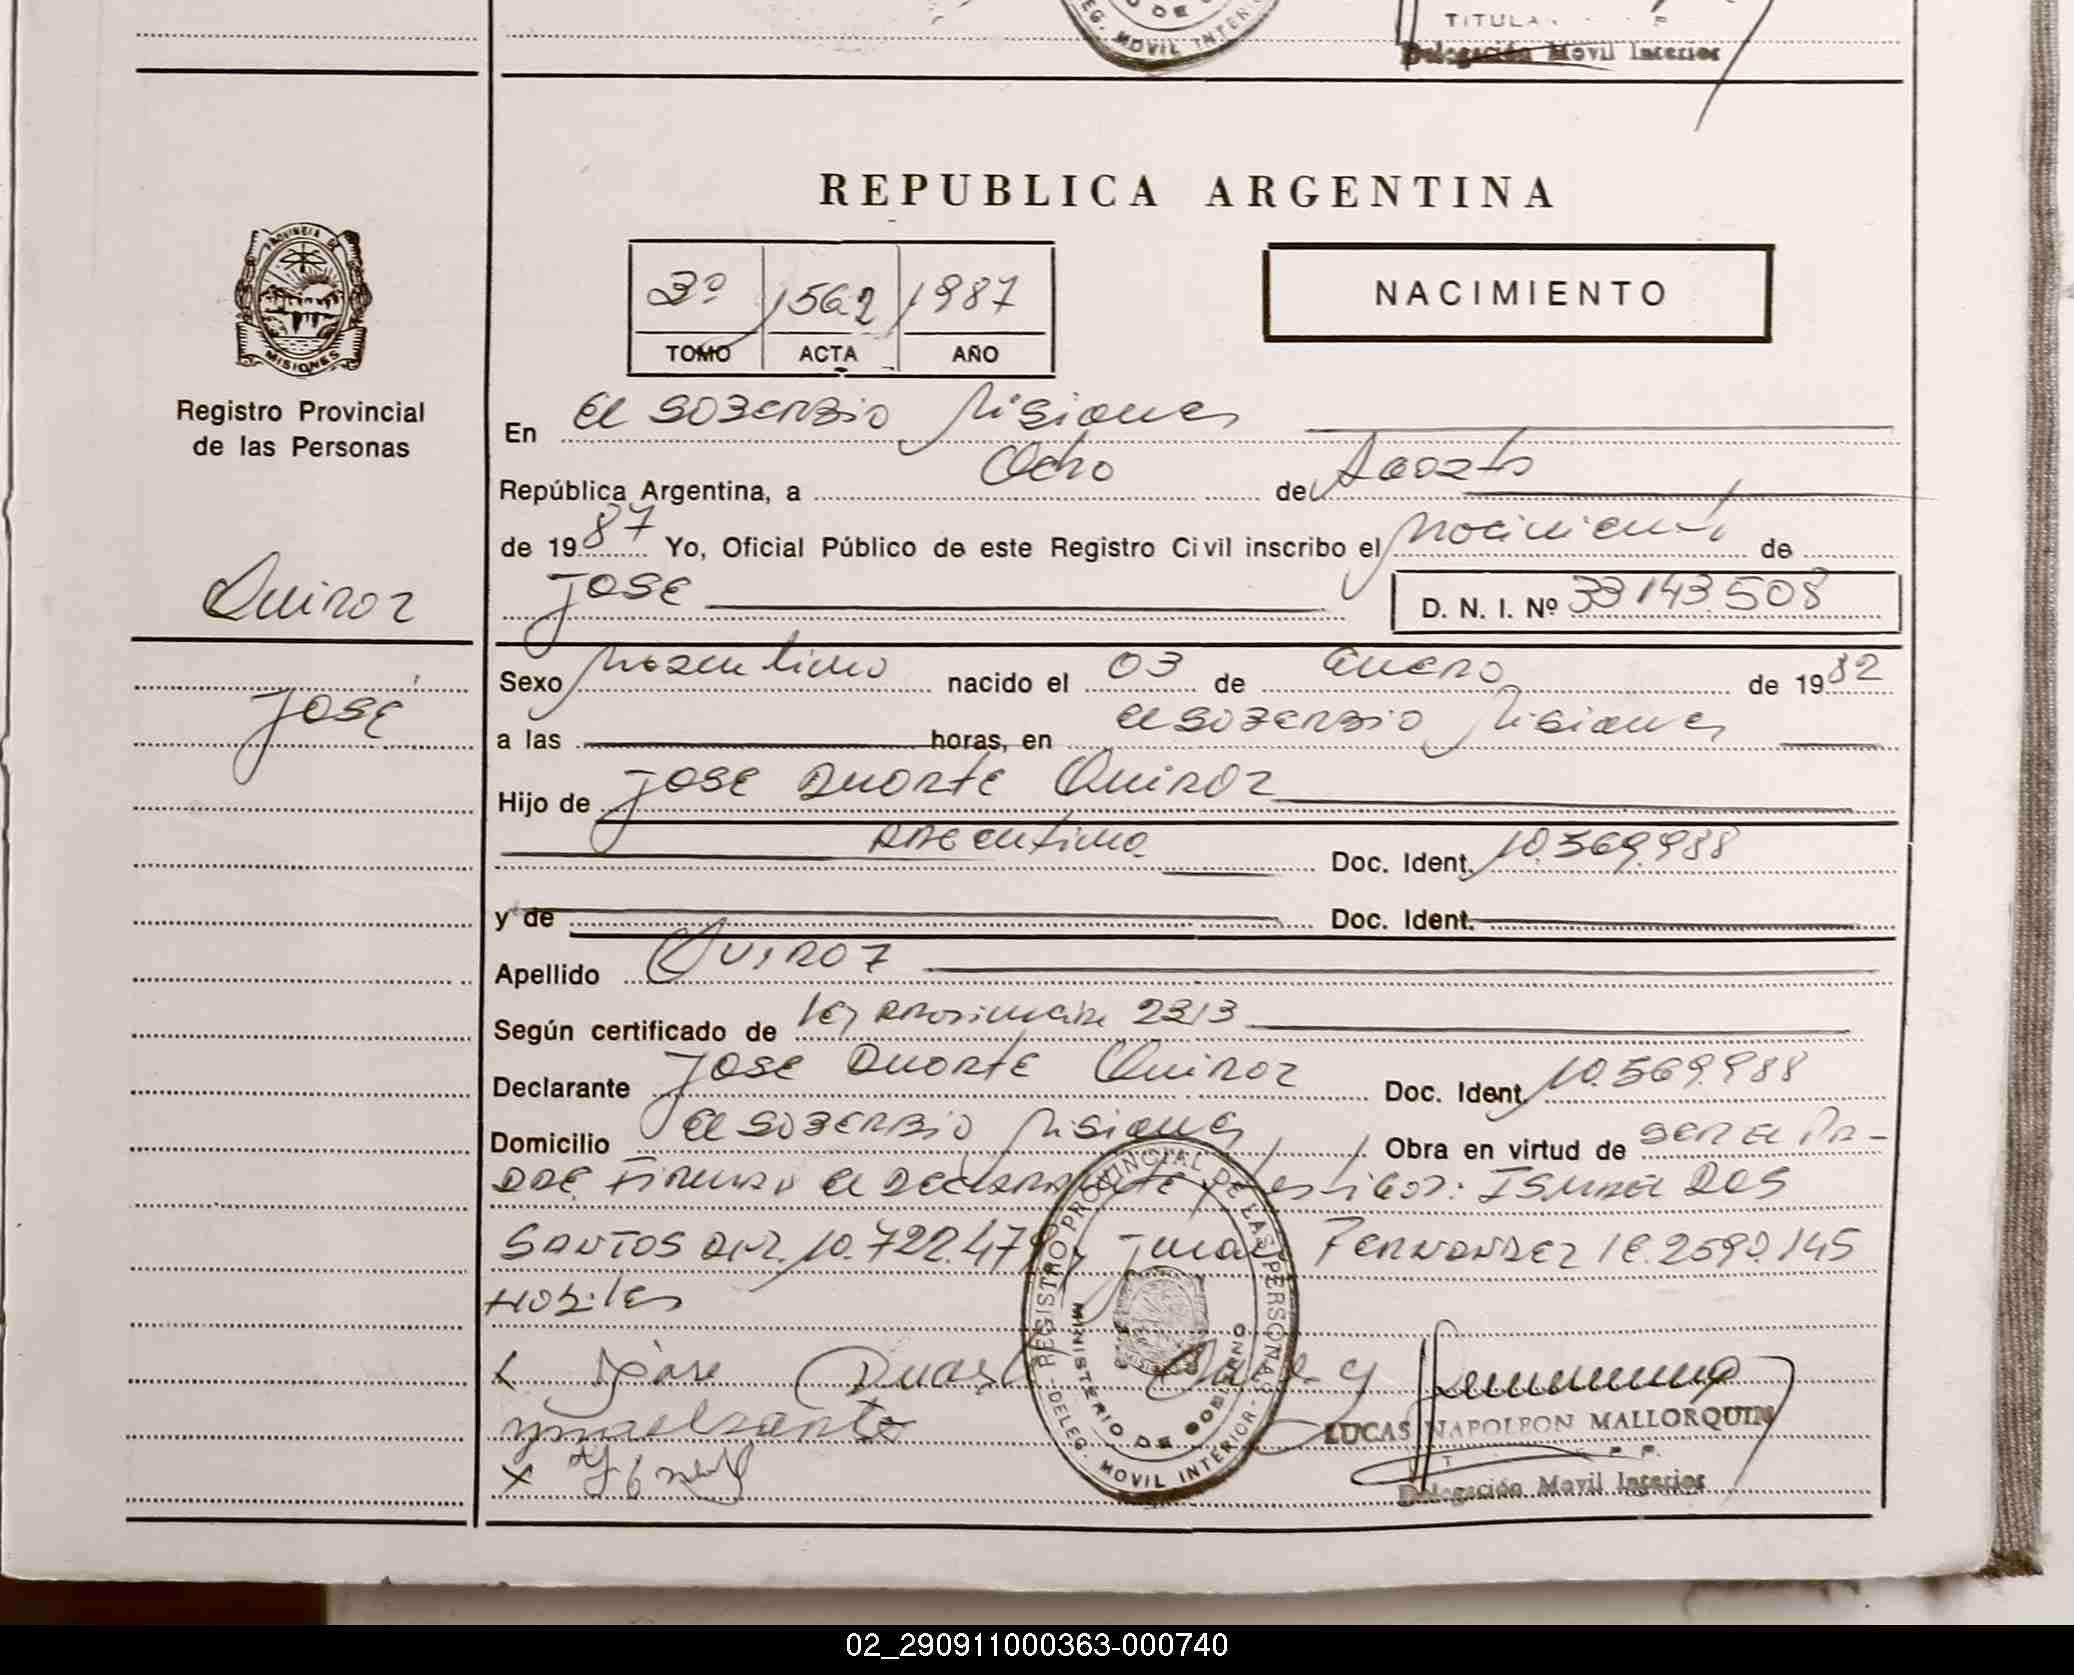 TITULA
Delegación Movil Interior
DELEG. MOVIL INTER
REPUBLICA ARGENTINA
PROVINCIA DE MISIONES
3º 1562 1987
TOMO ACTA AÑO
NACIMIENTO
Registro Provincial
de las Personas
Quiroz
José
En El Soberbio Misiones
República Argentina, a Ocho de Agosto
de 1987 Yo, Oficial Público de este Registro Civil inscribo el Nacimiento de
Jose D. N. I. Nº 33143.508
Sexo Masculino nacido el 03 de Enero de 1982
a las horas, en El Soberbio Misiones
Hijo de Jose Duarte Quiroz
Argentino Doc. Ident. 10.569.988
y de Doc. Ident.
Apellido Quiroz
Según certificado de Ley Provincial 2313
Declarante Jose Duarte Quiroz Doc. Ident. 10.569.988
Domicilio El Soberbio Misiones Obra en virtud de ser el Pa-
dre Firman el Declarante y testigos: Ismael Dos
Santos DNI 10.722.479 y Juan Fernandez 2590.145
Habiles
Jose Duarte
REGISTRO PROVINCIAL DE LAS PERSONAS
MINISTERIO DE GOBIERNO
-DELEG. MOVIL INTERIOR-
LUCAS NAPOLEON MALLORQUIN
Delegación Movil Interior
02_290911000363-000740